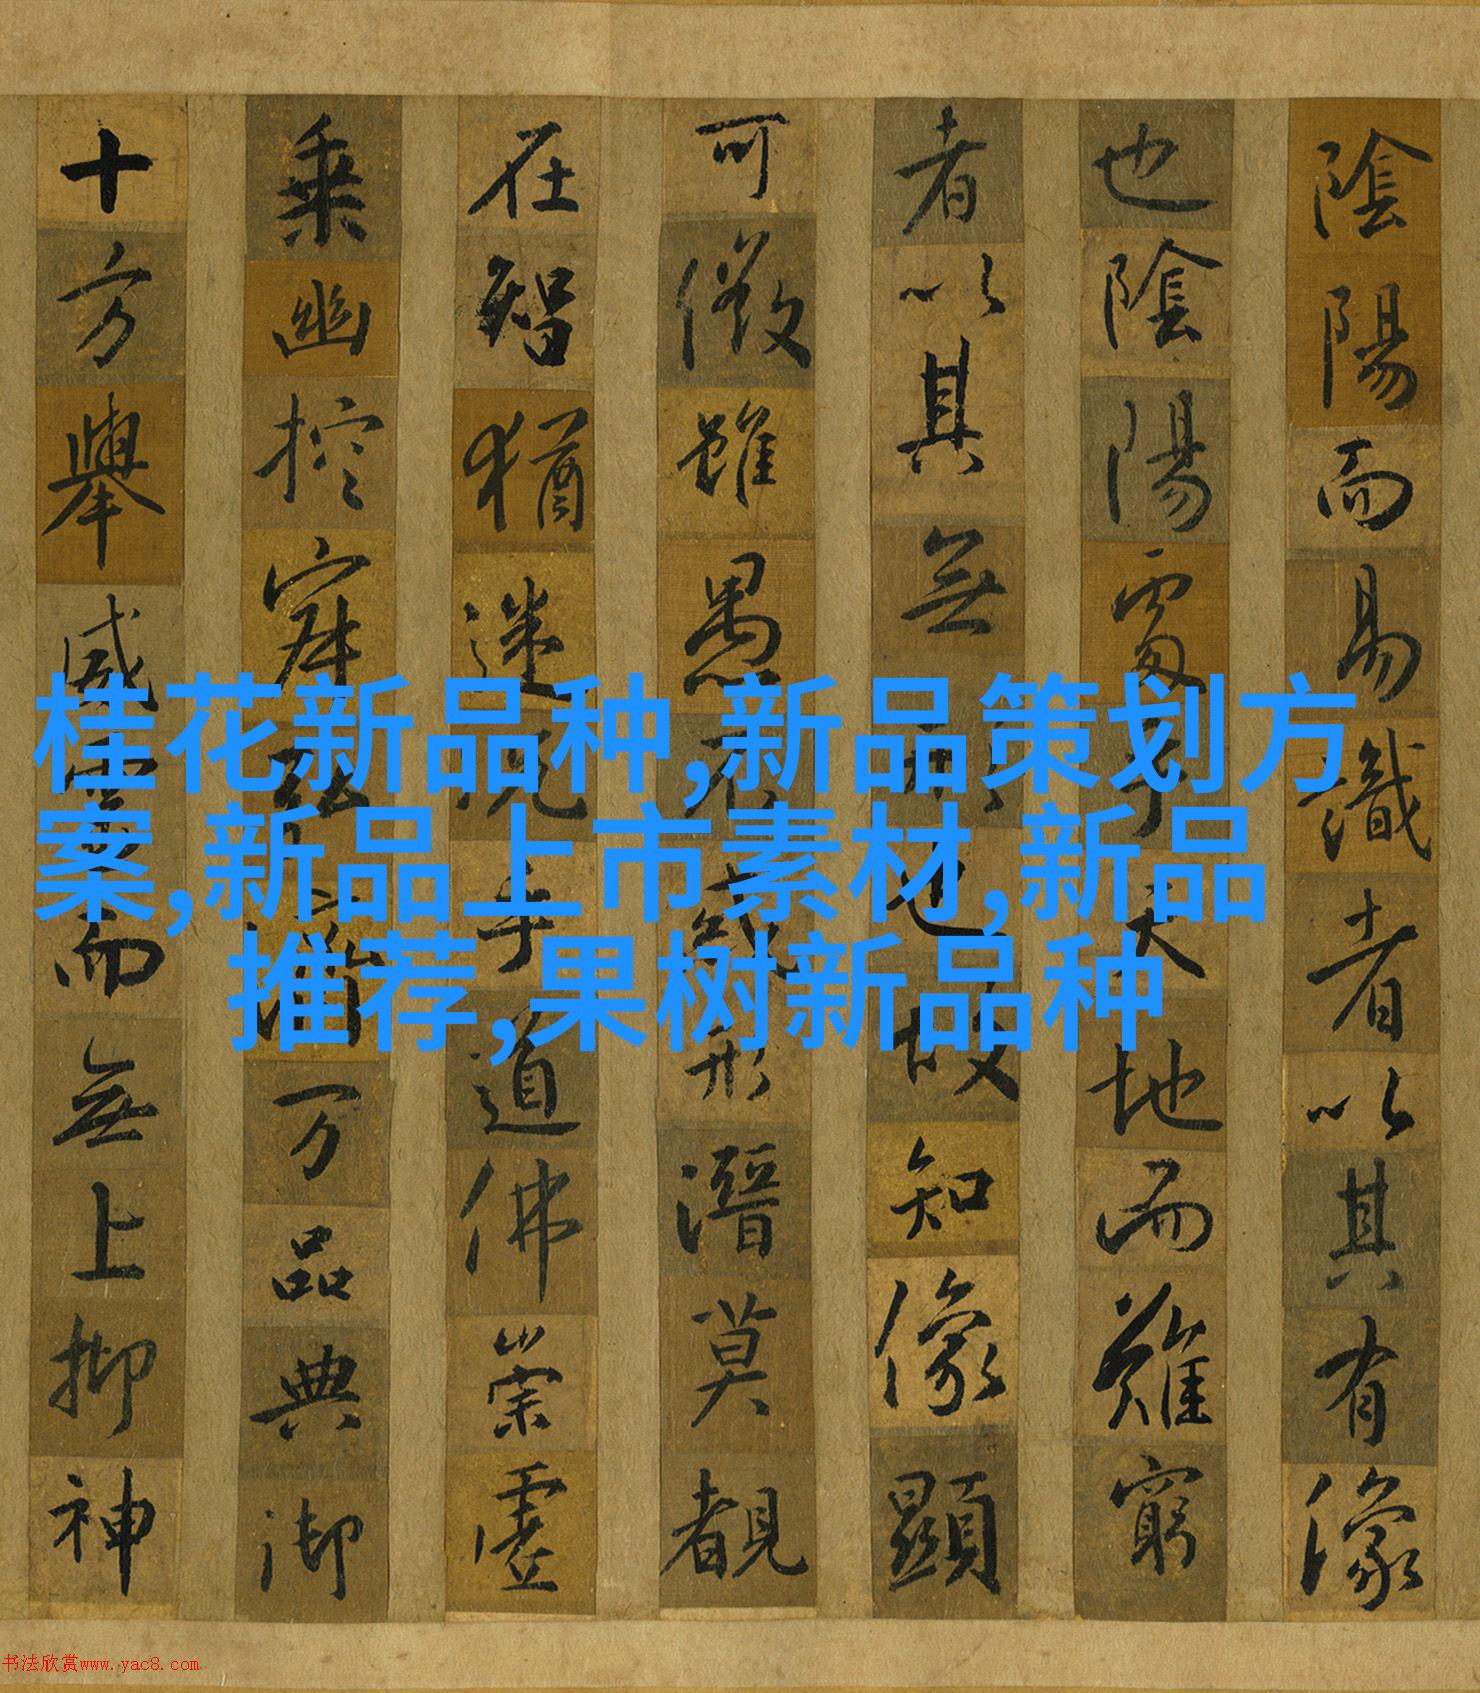 桂花新品种,新品策划方
案,新品上市素材,新品
推荐,果树新品种
陰陽而易識者以其有像
也陰陽處乎天地而難窮
者以其無形也故知像顯
可徵雖愚不惑形潛莫覩
在智猶迷況乎道佛崇虛
乘幽控寂弘濟万品典御
十方舉威靈而無上抑神
书法欣赏www.yac8.com